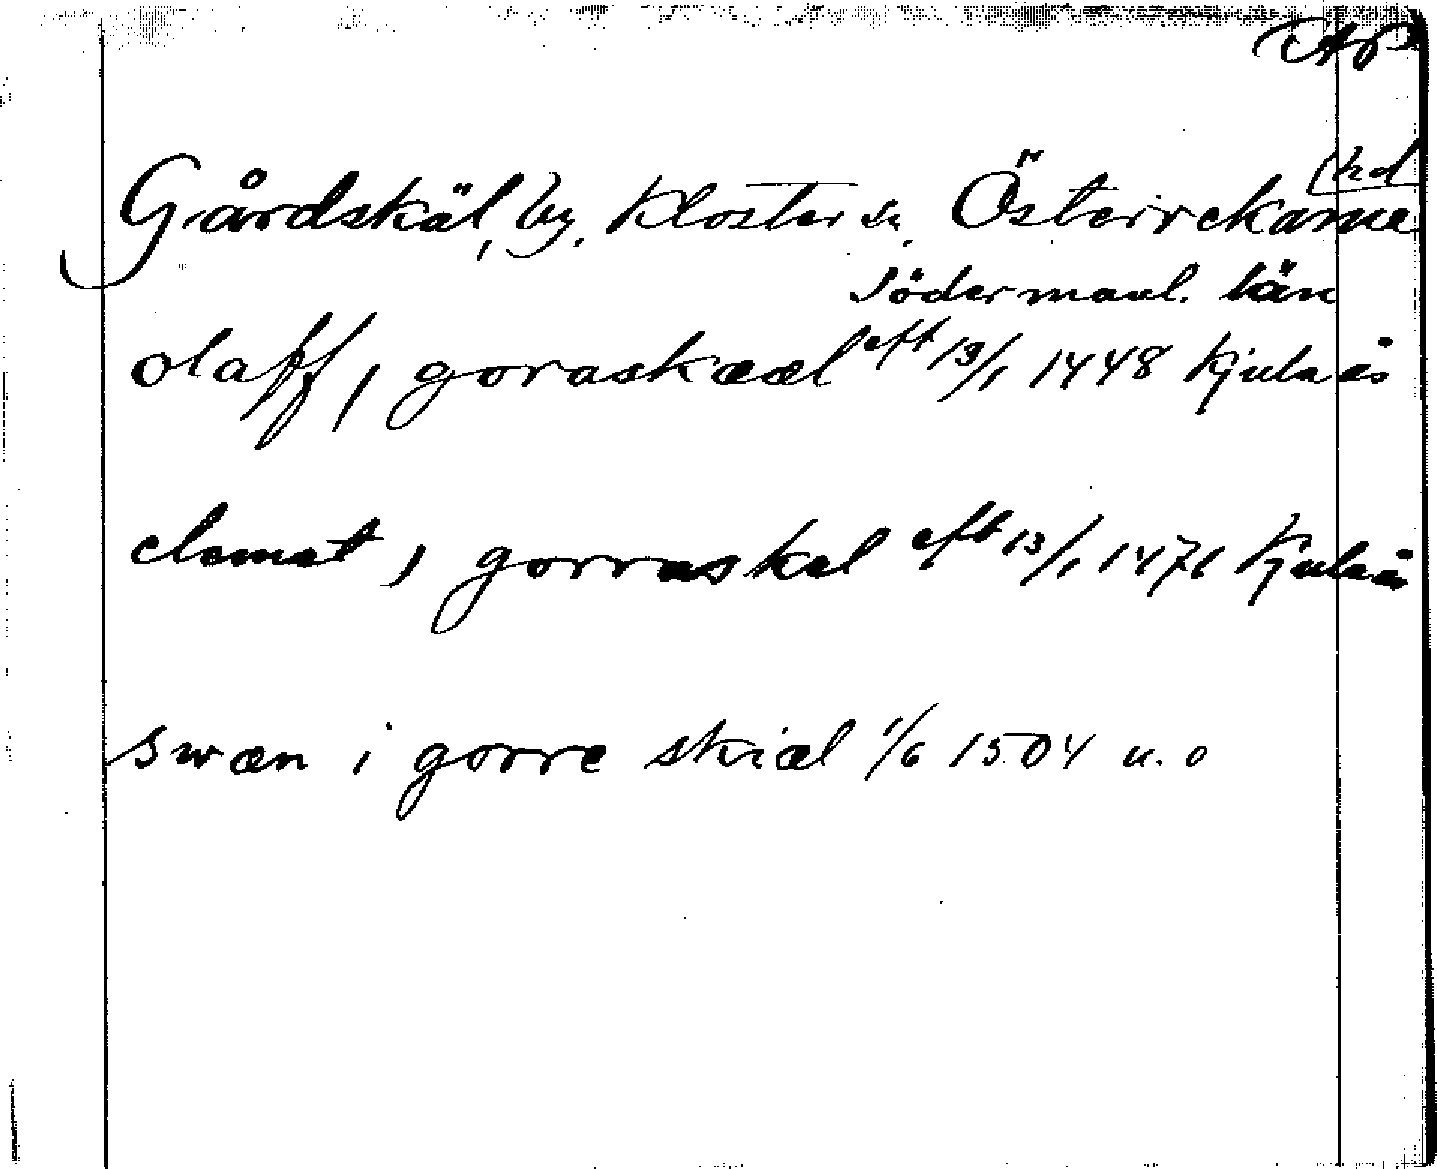 Gårdskäl, by, Kloster sn, Österrekarne hd
Södermanl. län
olaff j goraskææl eft 13/1 1448 Kjula ås
clemet j gorraskel eft 13/1 1471 Kjula ås
swæn i gorre skiæl 1/6 1504 u. o